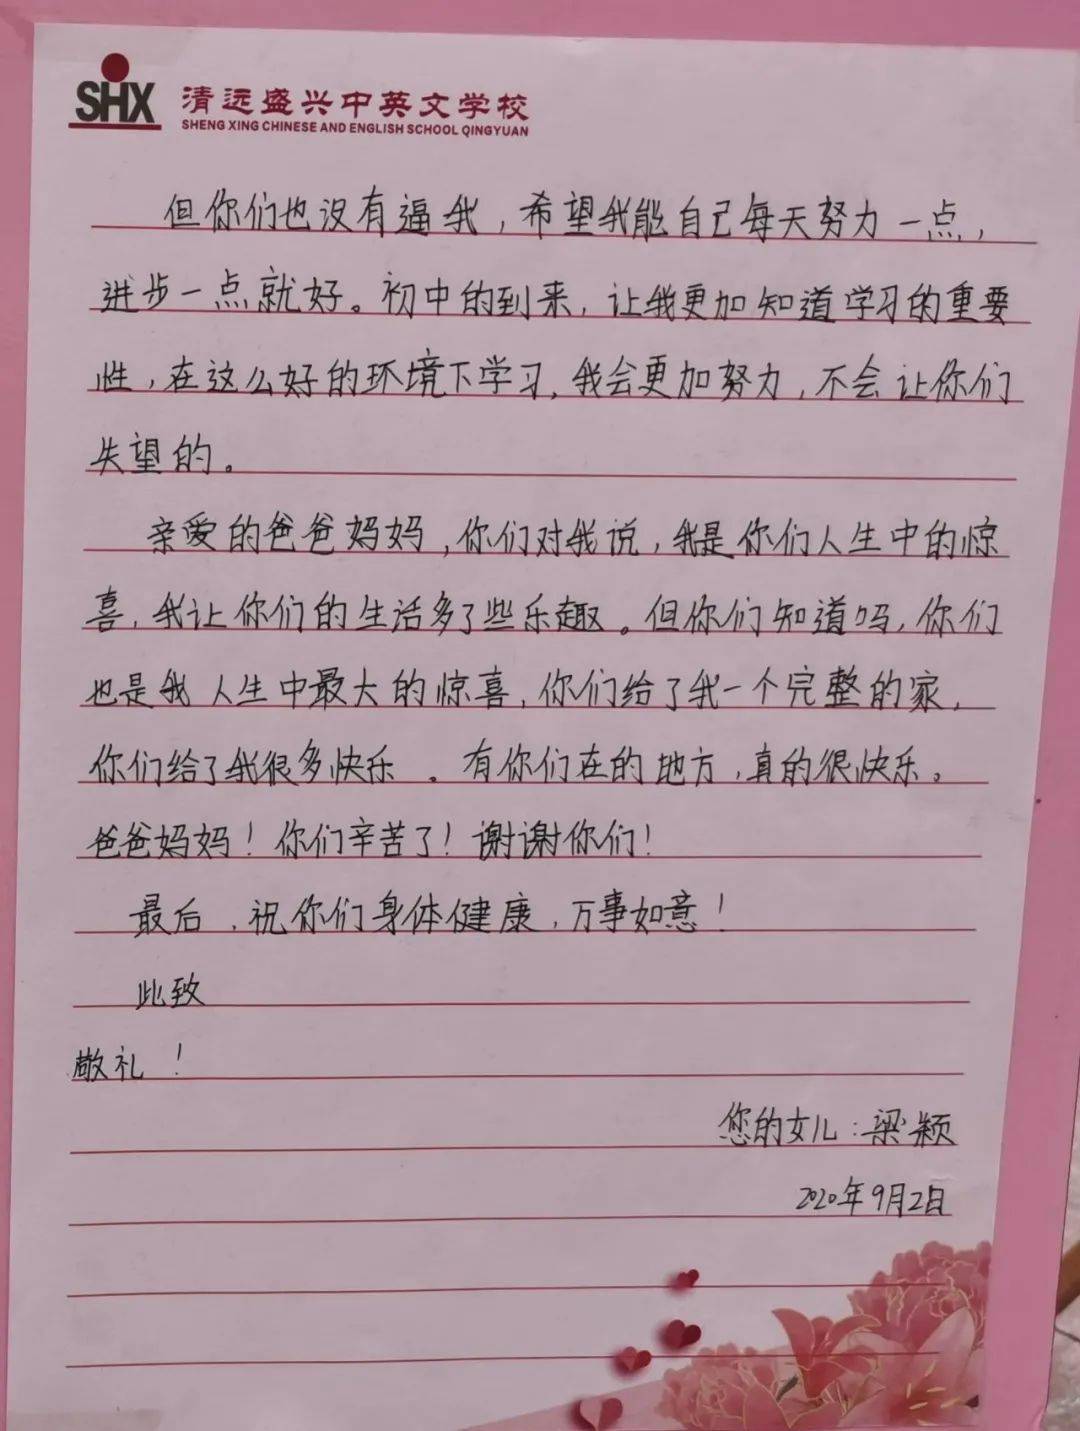 SHX
清远盛兴中英文学校
SHENG XING CHINESE AND ENGLISH SCHOOL QINGYUAN
但你们也没有逼我，希望我能自己每天努力一点，
进步一点就好。初中的到来，让我更加知道学习的重要
性，在这么好的环境下学习，我会更加努力，不会让你们
失望的。
亲爱的爸爸妈妈，你们对我说，我是你们人生中的惊
喜，我让你们的生活多了些乐趣。但你们知道吗，你们
也是我人生中最大的惊喜，你们给了我一个完整的家，
你们给了我很多快乐。有你们在的地方，真的很快乐。
爸爸妈妈！你们辛苦了！谢谢你们！
最后，祝你们身体健康，万事如意！
此致
敬礼！
您的女儿：梁颖
2020年9月2日